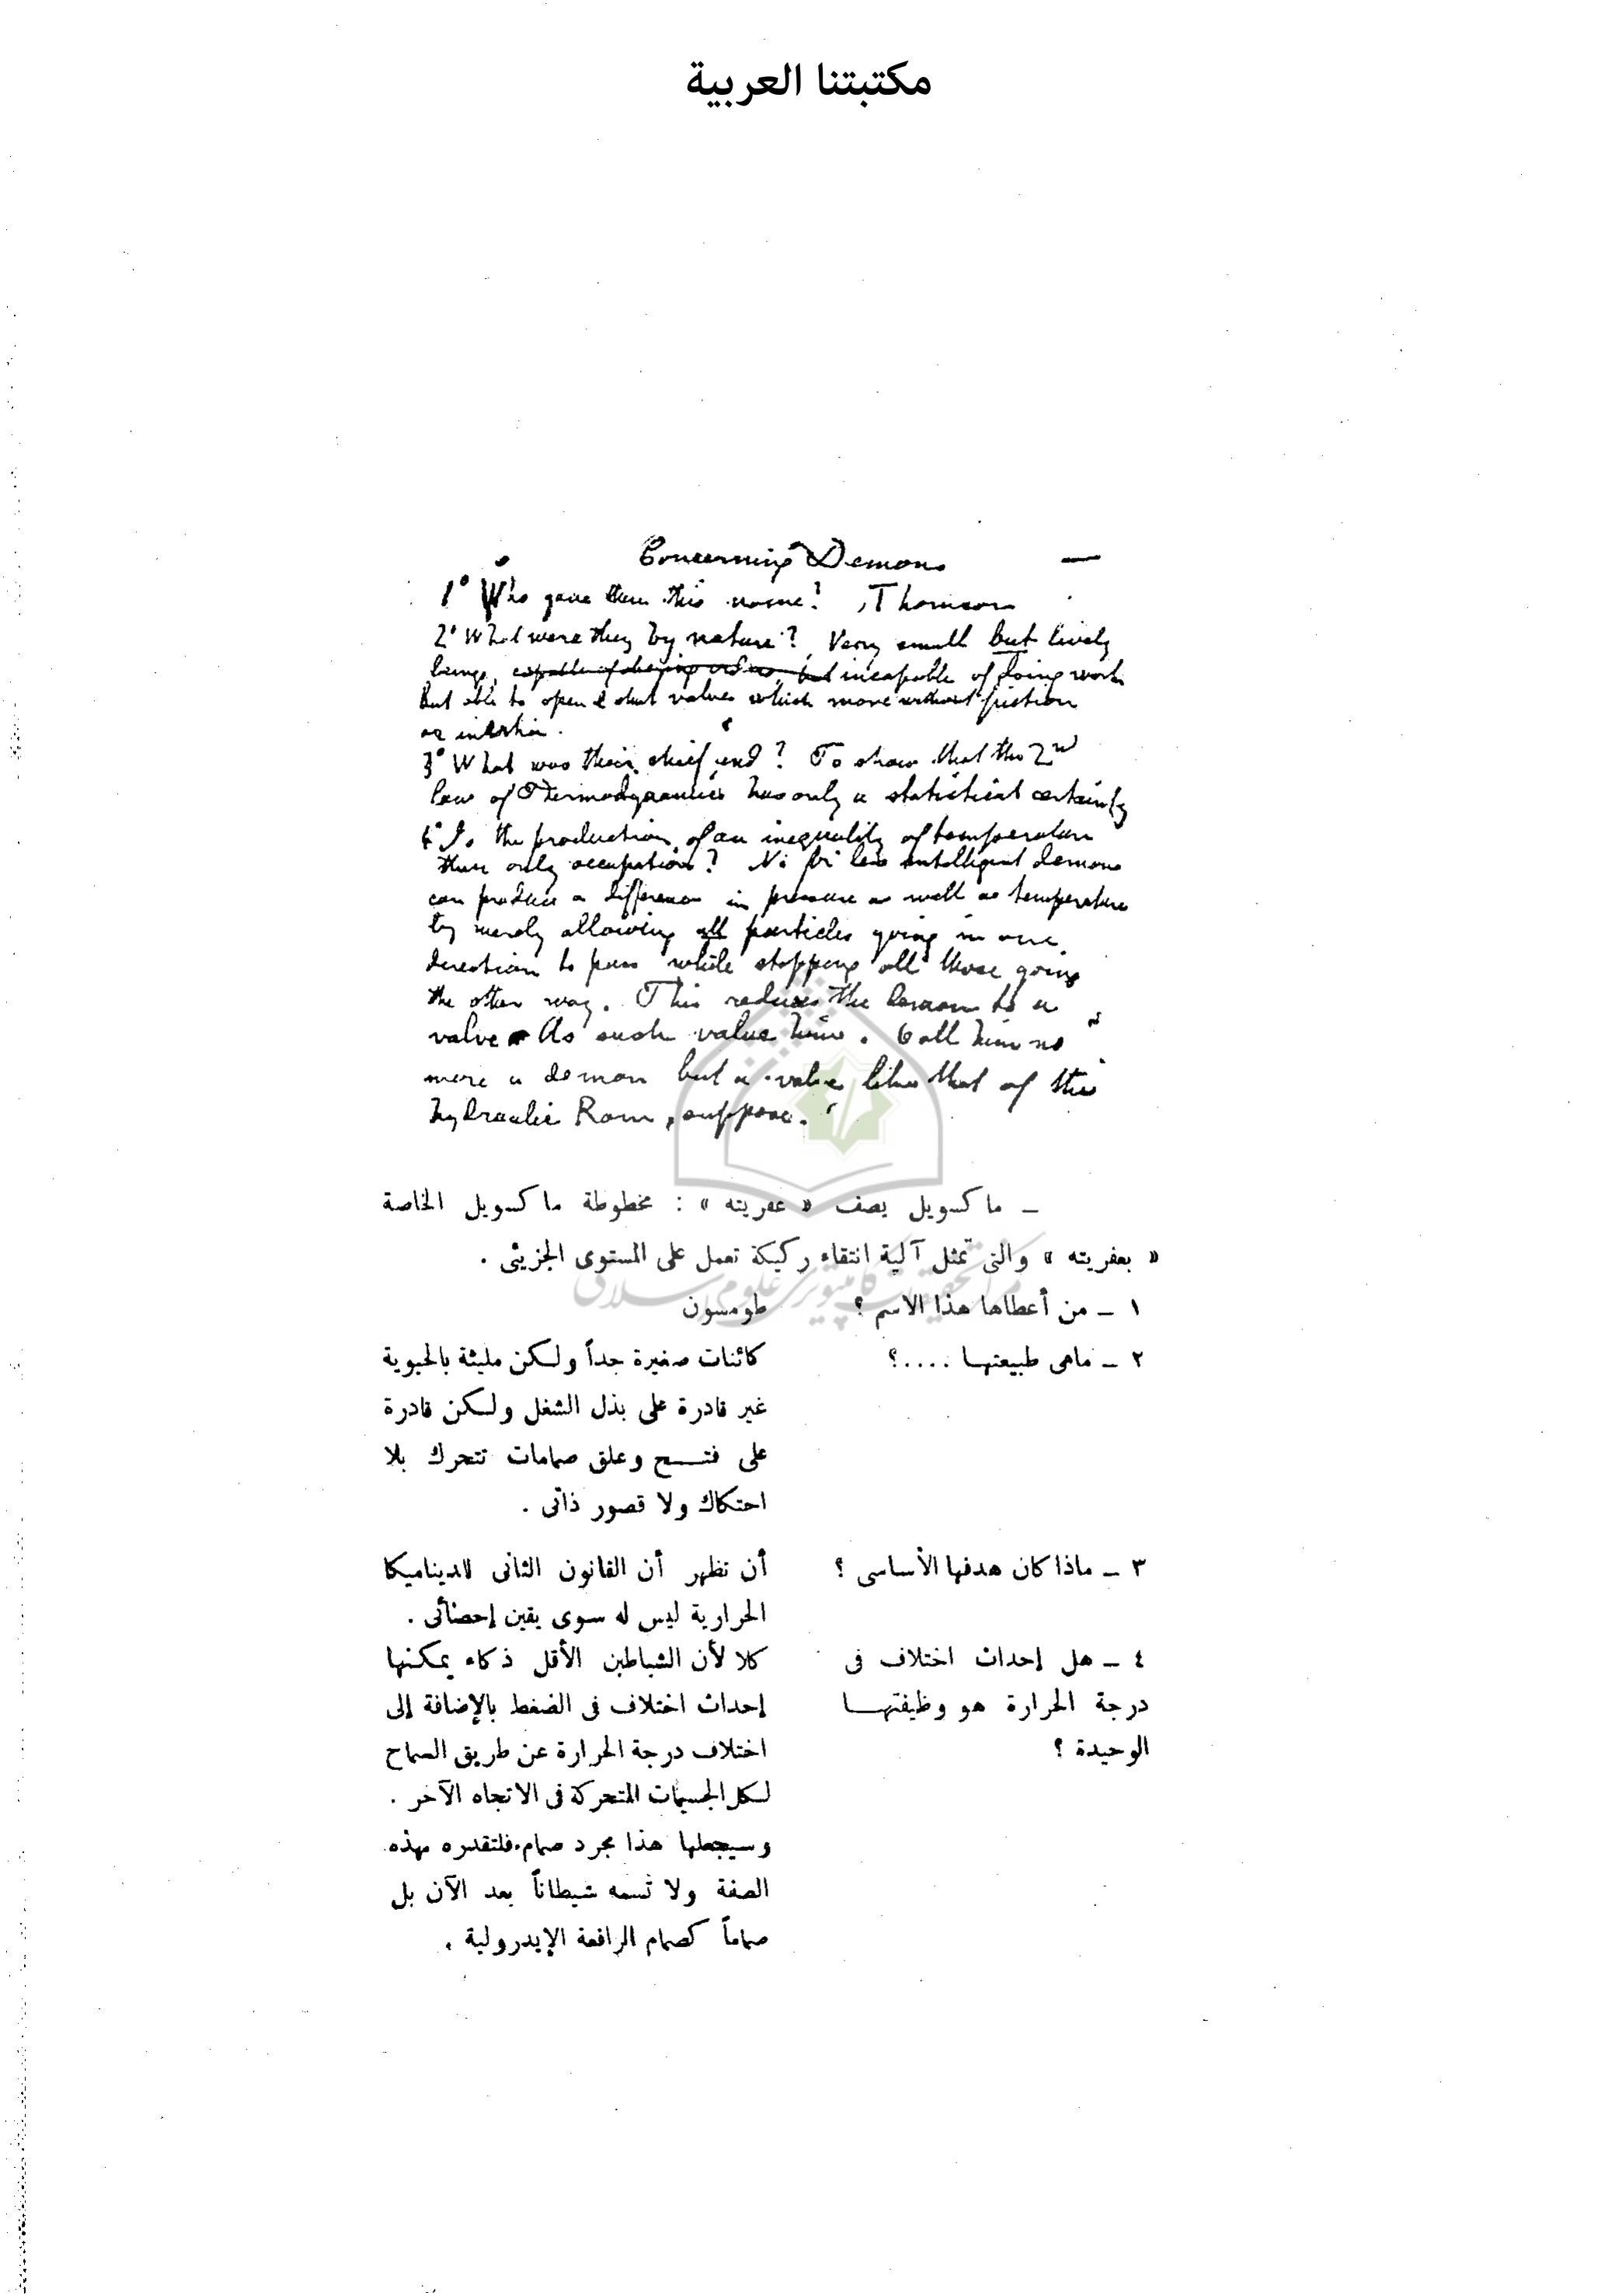 مكتبتنا العربية
Concerning Demons
1° Who gave them this name? Thomson
2° What were they by nature? Very small but lively
beings, incapable of doing work
but able to open & shut valves which move without friction
or inertia.
3° What was their chief end? To show that the 2nd
law of Thermodynamics has only a statistical certainty
4° Is the production of an inequality of temperature
their only occupation? No for less intelligent demons
can produce a difference in pressure as well as temperature
by merely allowing all particles going in one
direction to pass while stopping all those going
the other way. This reduces the demon to a
valve. As such value him. Call him no
more a demon but a valve like that of the
hydraulic Ram, suppose.
– ماكسويل يصف « عفريته » : مخطوطة ماكسويل الخاصة
« بعفريته » والتى تمثل آلية انتقاء ركيكة تعمل على المستوى الجزيئى .
١ – من أعطاها هذا الاسم ؟ طومسون
٢ – ماهى طبيعتها ....؟ كائنات صغيرة جداً ولكن مليئة بالحيوية
غير قادرة على بذل الشغل ولكن قادرة
على فتح وغلق صمامات تتحرك بلا
احتكاك ولا قصور ذاتى .
٣ – ماذا كان هدفها الأساسى ؟ أن تظهر أن القانون الثانى للديناميكا
الحرارية ليس له سوى يقين إحصائى .
٤ – هل إحداث اختلاف فى كلا لأن الشياطين الأقل ذكاء يمكنها
درجة الحرارة هو وظيفتها إحداث اختلاف فى الضغط بالإضافة إلى
الوحيدة ؟ اختلاف درجة الحرارة عن طريق السماح
لكل الجسيمات المتحركة فى الاتجاه الآخر .
وسيجعلها هذا مجرد صمام.فلتقدره بهذه
الصفة ولا تسمه شيطاناً بعد الآن بل
صماماً كصمام الرافعة الإيدرولية .